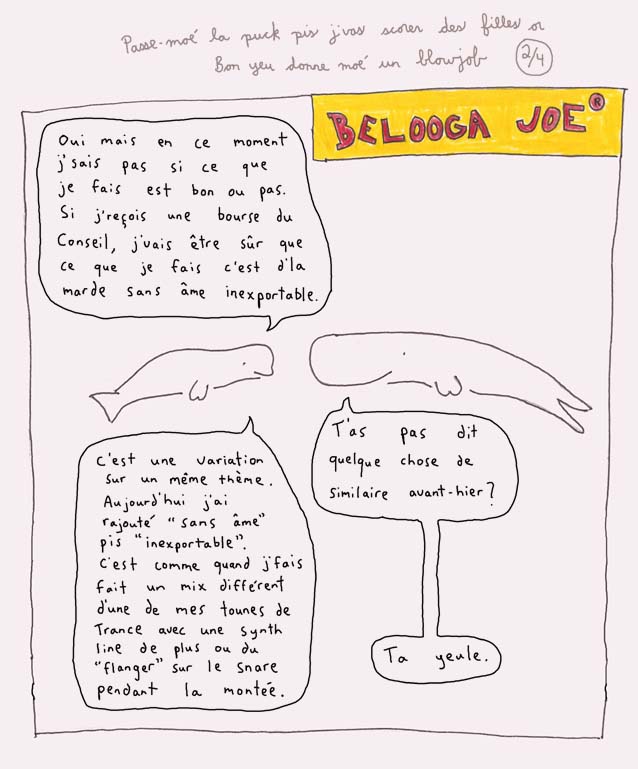 Passe-moé la puck pis j'vas scorer des filles or
Bon yeu donne moé un blowjob 2/4
BELOOGA JOE®
Oui mais en ce moment
j'sais pas si ce que
je fais est bon ou pas.
Si j'reçois une bourse du
Conseil, j'vais être sûr que
ce que je fais c'est d'la
marde sans âme inexportable.
T'as pas dit
quelque chose de
similaire avant-hier?
C'est une variation
sur un même thème.
Aujourd'hui j'ai
rajouté "sans âme"
pis "inexportable".
C'est comme quand j'fais
fait un mix différent
d'une de mes tounes de
Trance avec une synth
line de plus ou du
"flanger" sur le snare
pendant la montée.
Ta yeule.